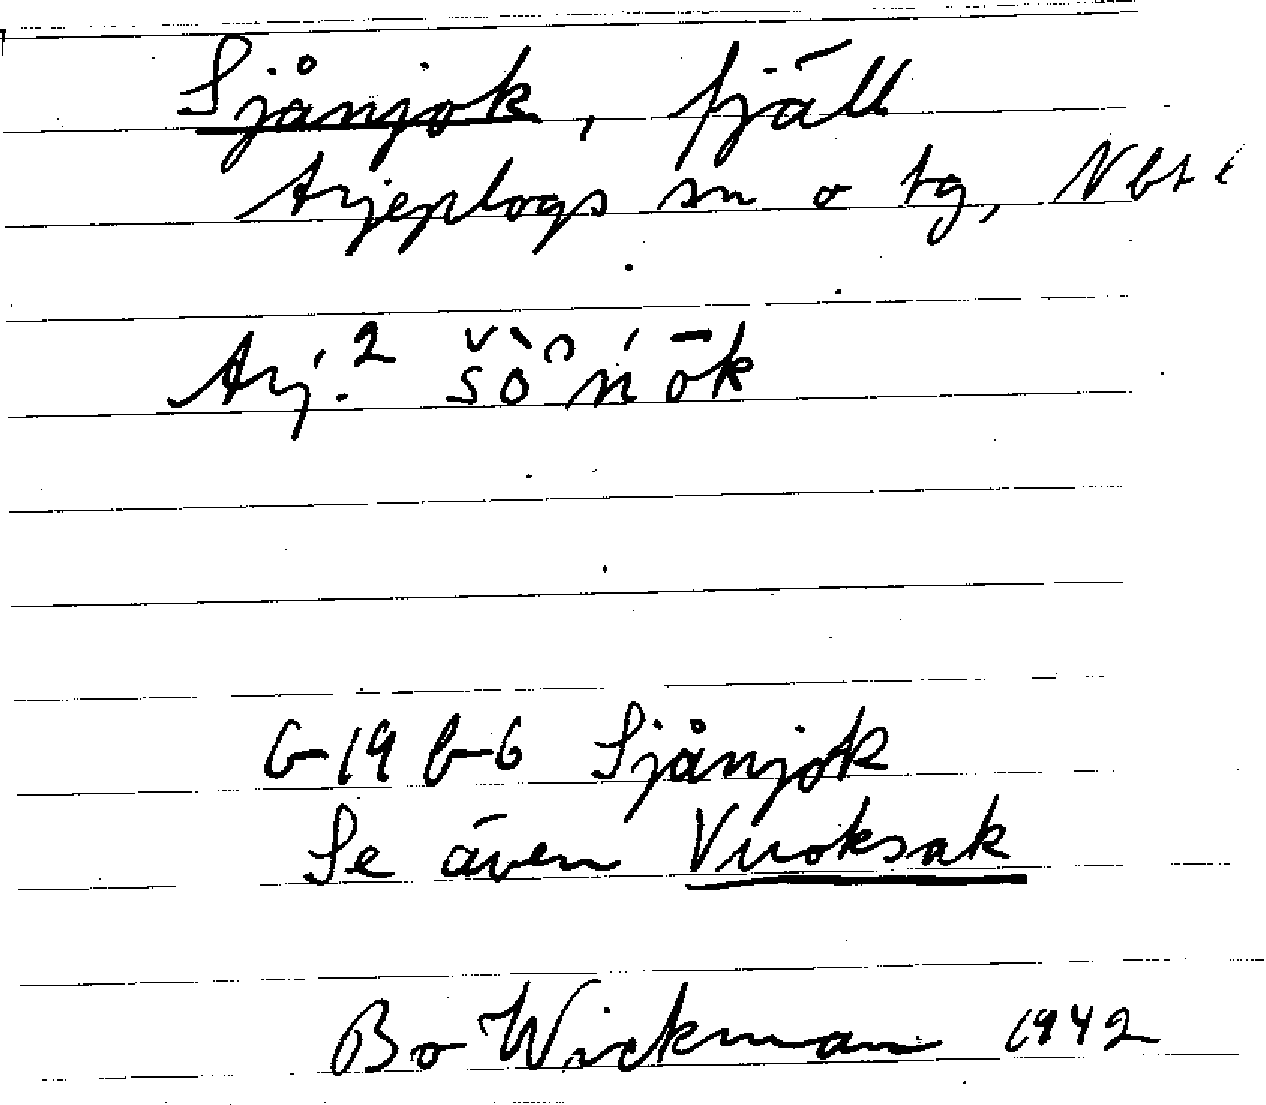 Sjånjok, fjäll
Arjeplogs sn o tg, Nbt l
Arj.² šò̑ńōk
G-19 b-6 Sjånjok
Se även Vuoksak
Bo Wickman 1942